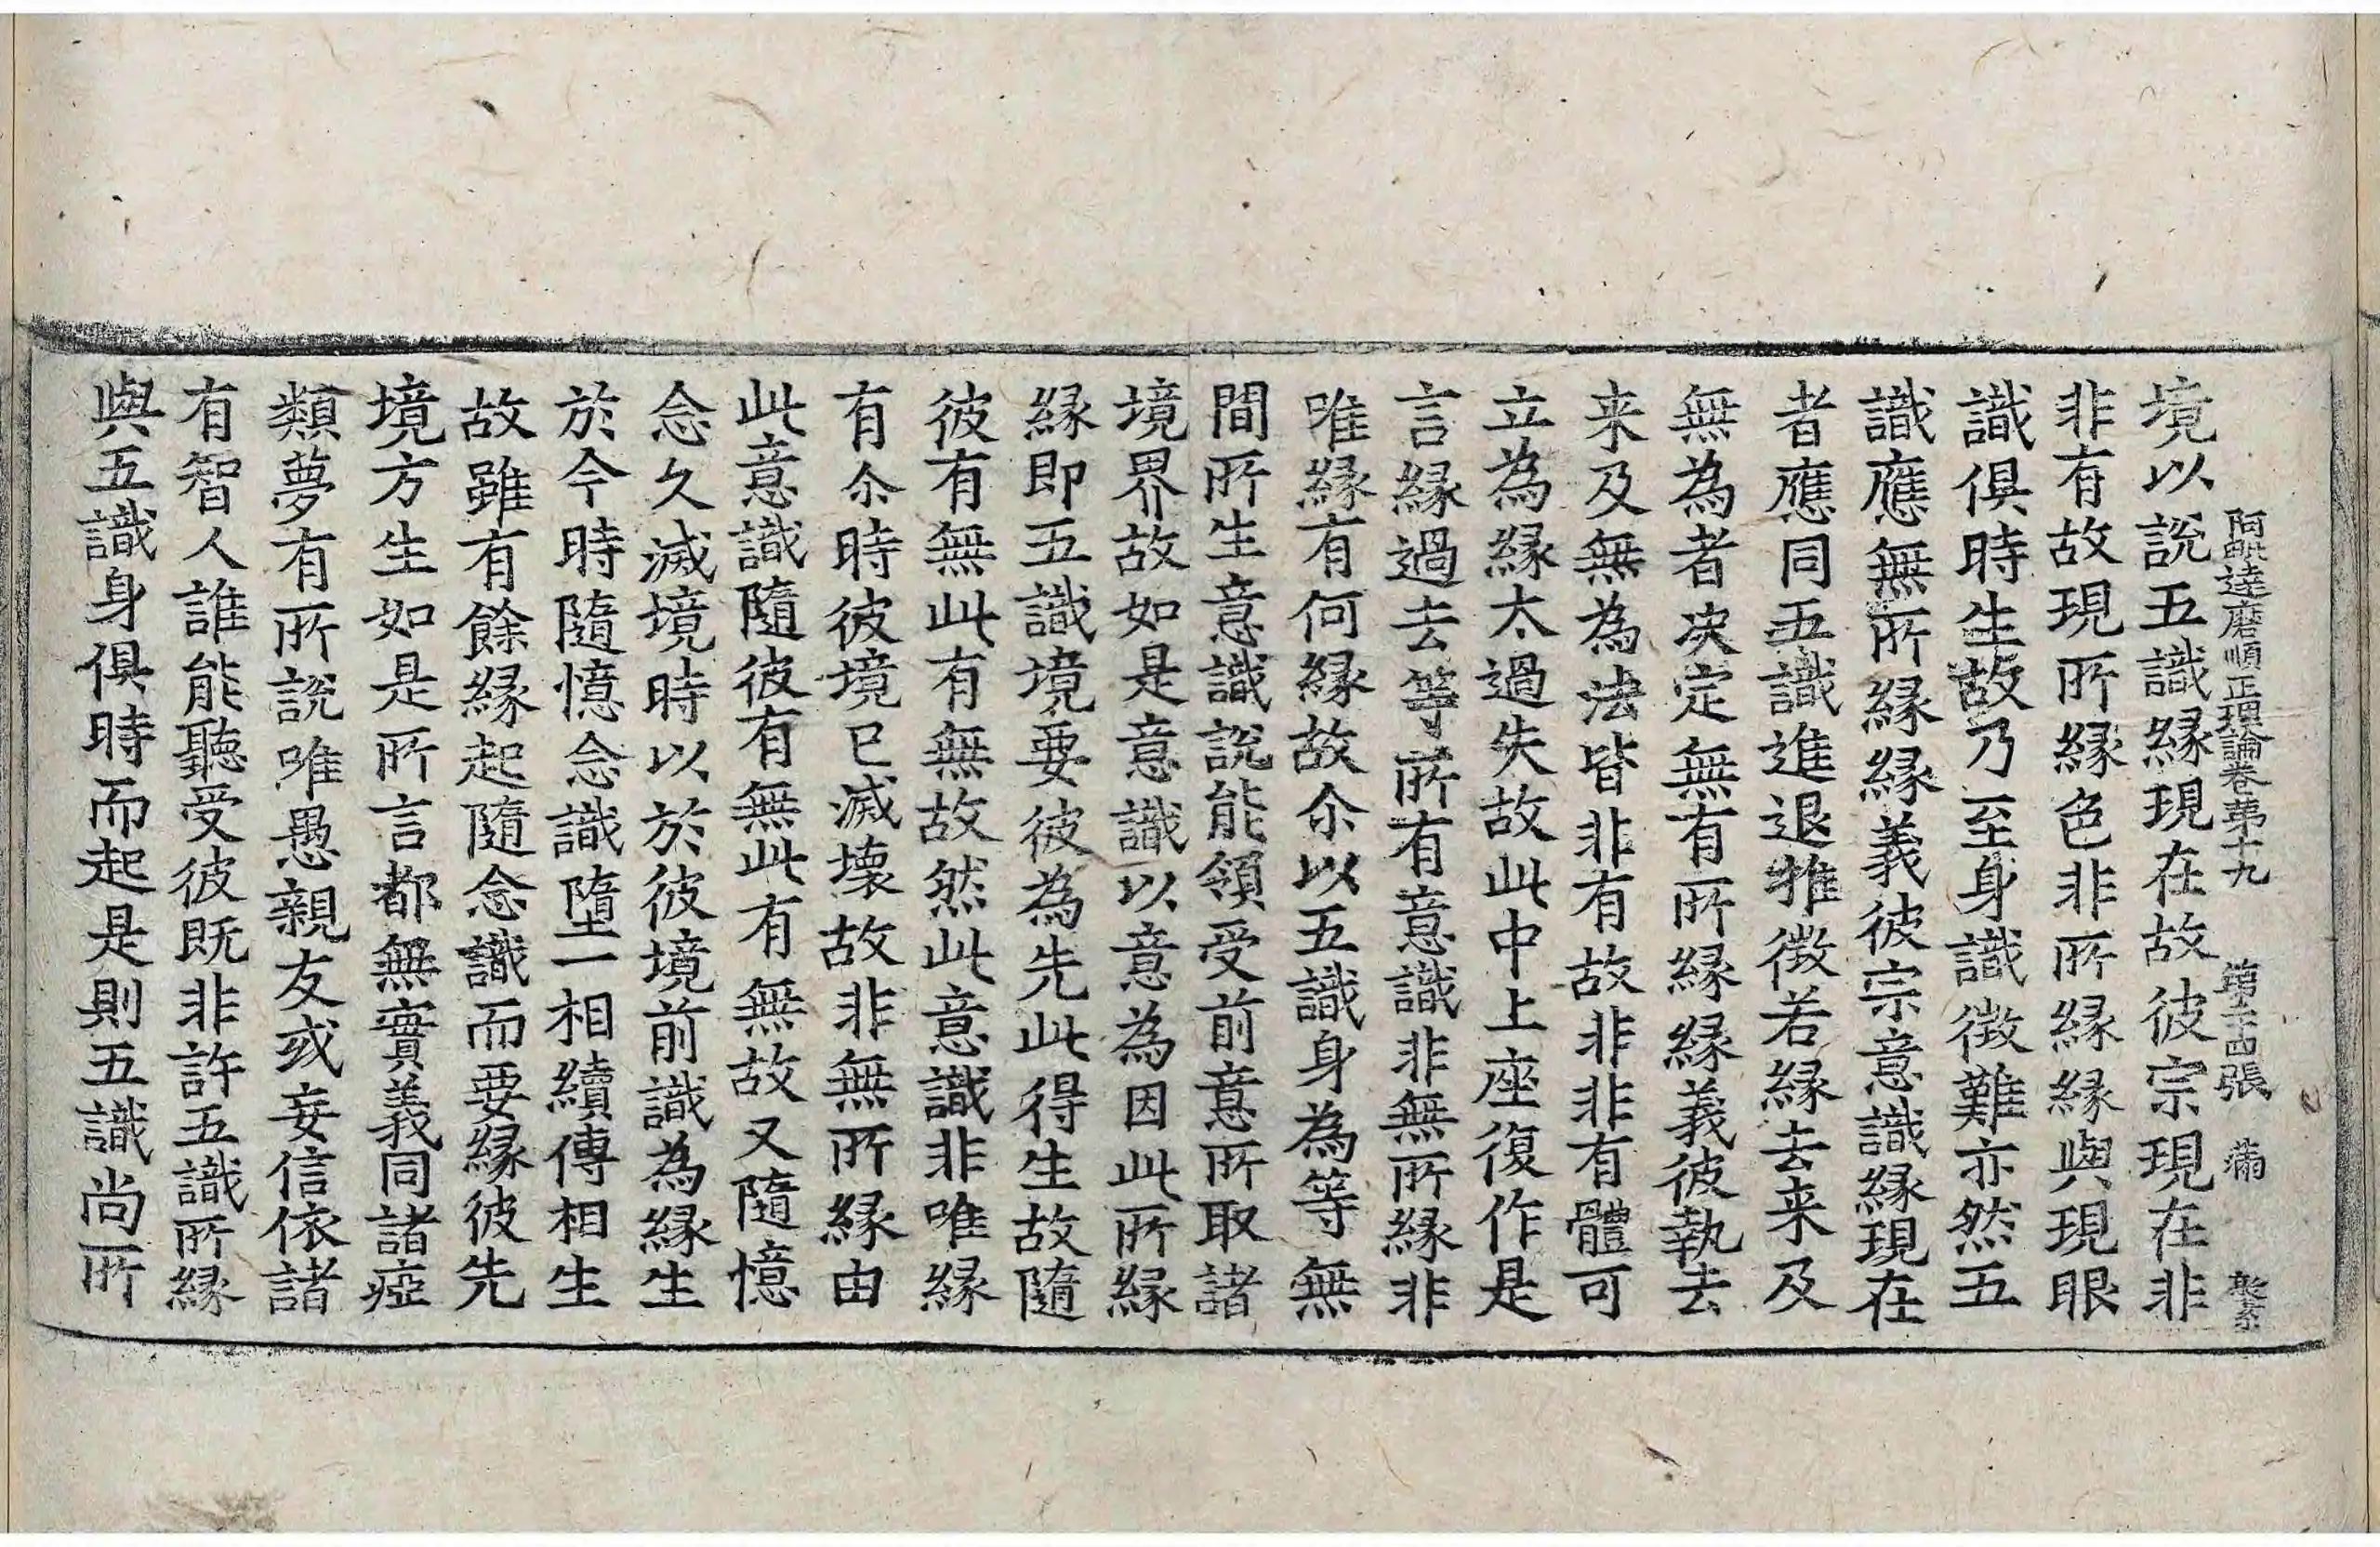 阿毗達磨順正理論卷苐十九 第二十四張 滿
境以說五識縁現在故彼宗現在非
非有故現所縁色非所縁縁與現眼
識俱時生故乃至身識徴難亦然五
識應無所縁縁義彼宗意識縁現在
者應同五識進退推徴若縁去来及
無為者决定無有所縁縁義彼執去
来及無為法皆非有故非非有體可
立為縁太過失故此中上座復作是
言縁過去等所有意識非無所縁非
唯縁有何縁故尒以五識身為等無
間所生意識說能領受前意所取諸
境界故如是意識以意為因此所縁
縁即五識境要彼為先此得生故隨
彼有無此有無故然此意識非唯縁
有尒時彼境已滅壞故非無所縁由
此意識隨彼有無此有無故又隨憶
念久滅境時以於彼境前識為縁生
於今時隨憶念識墮一相續傳相生
故雖有餘縁起隨念識而要縁彼先
境方生如是所言都無實義同諸瘂
類夢有所說唯愚親友或妄信依諸
有智人誰能聽受彼既非許五識所縁
與五識身俱時而起是則五識尚所